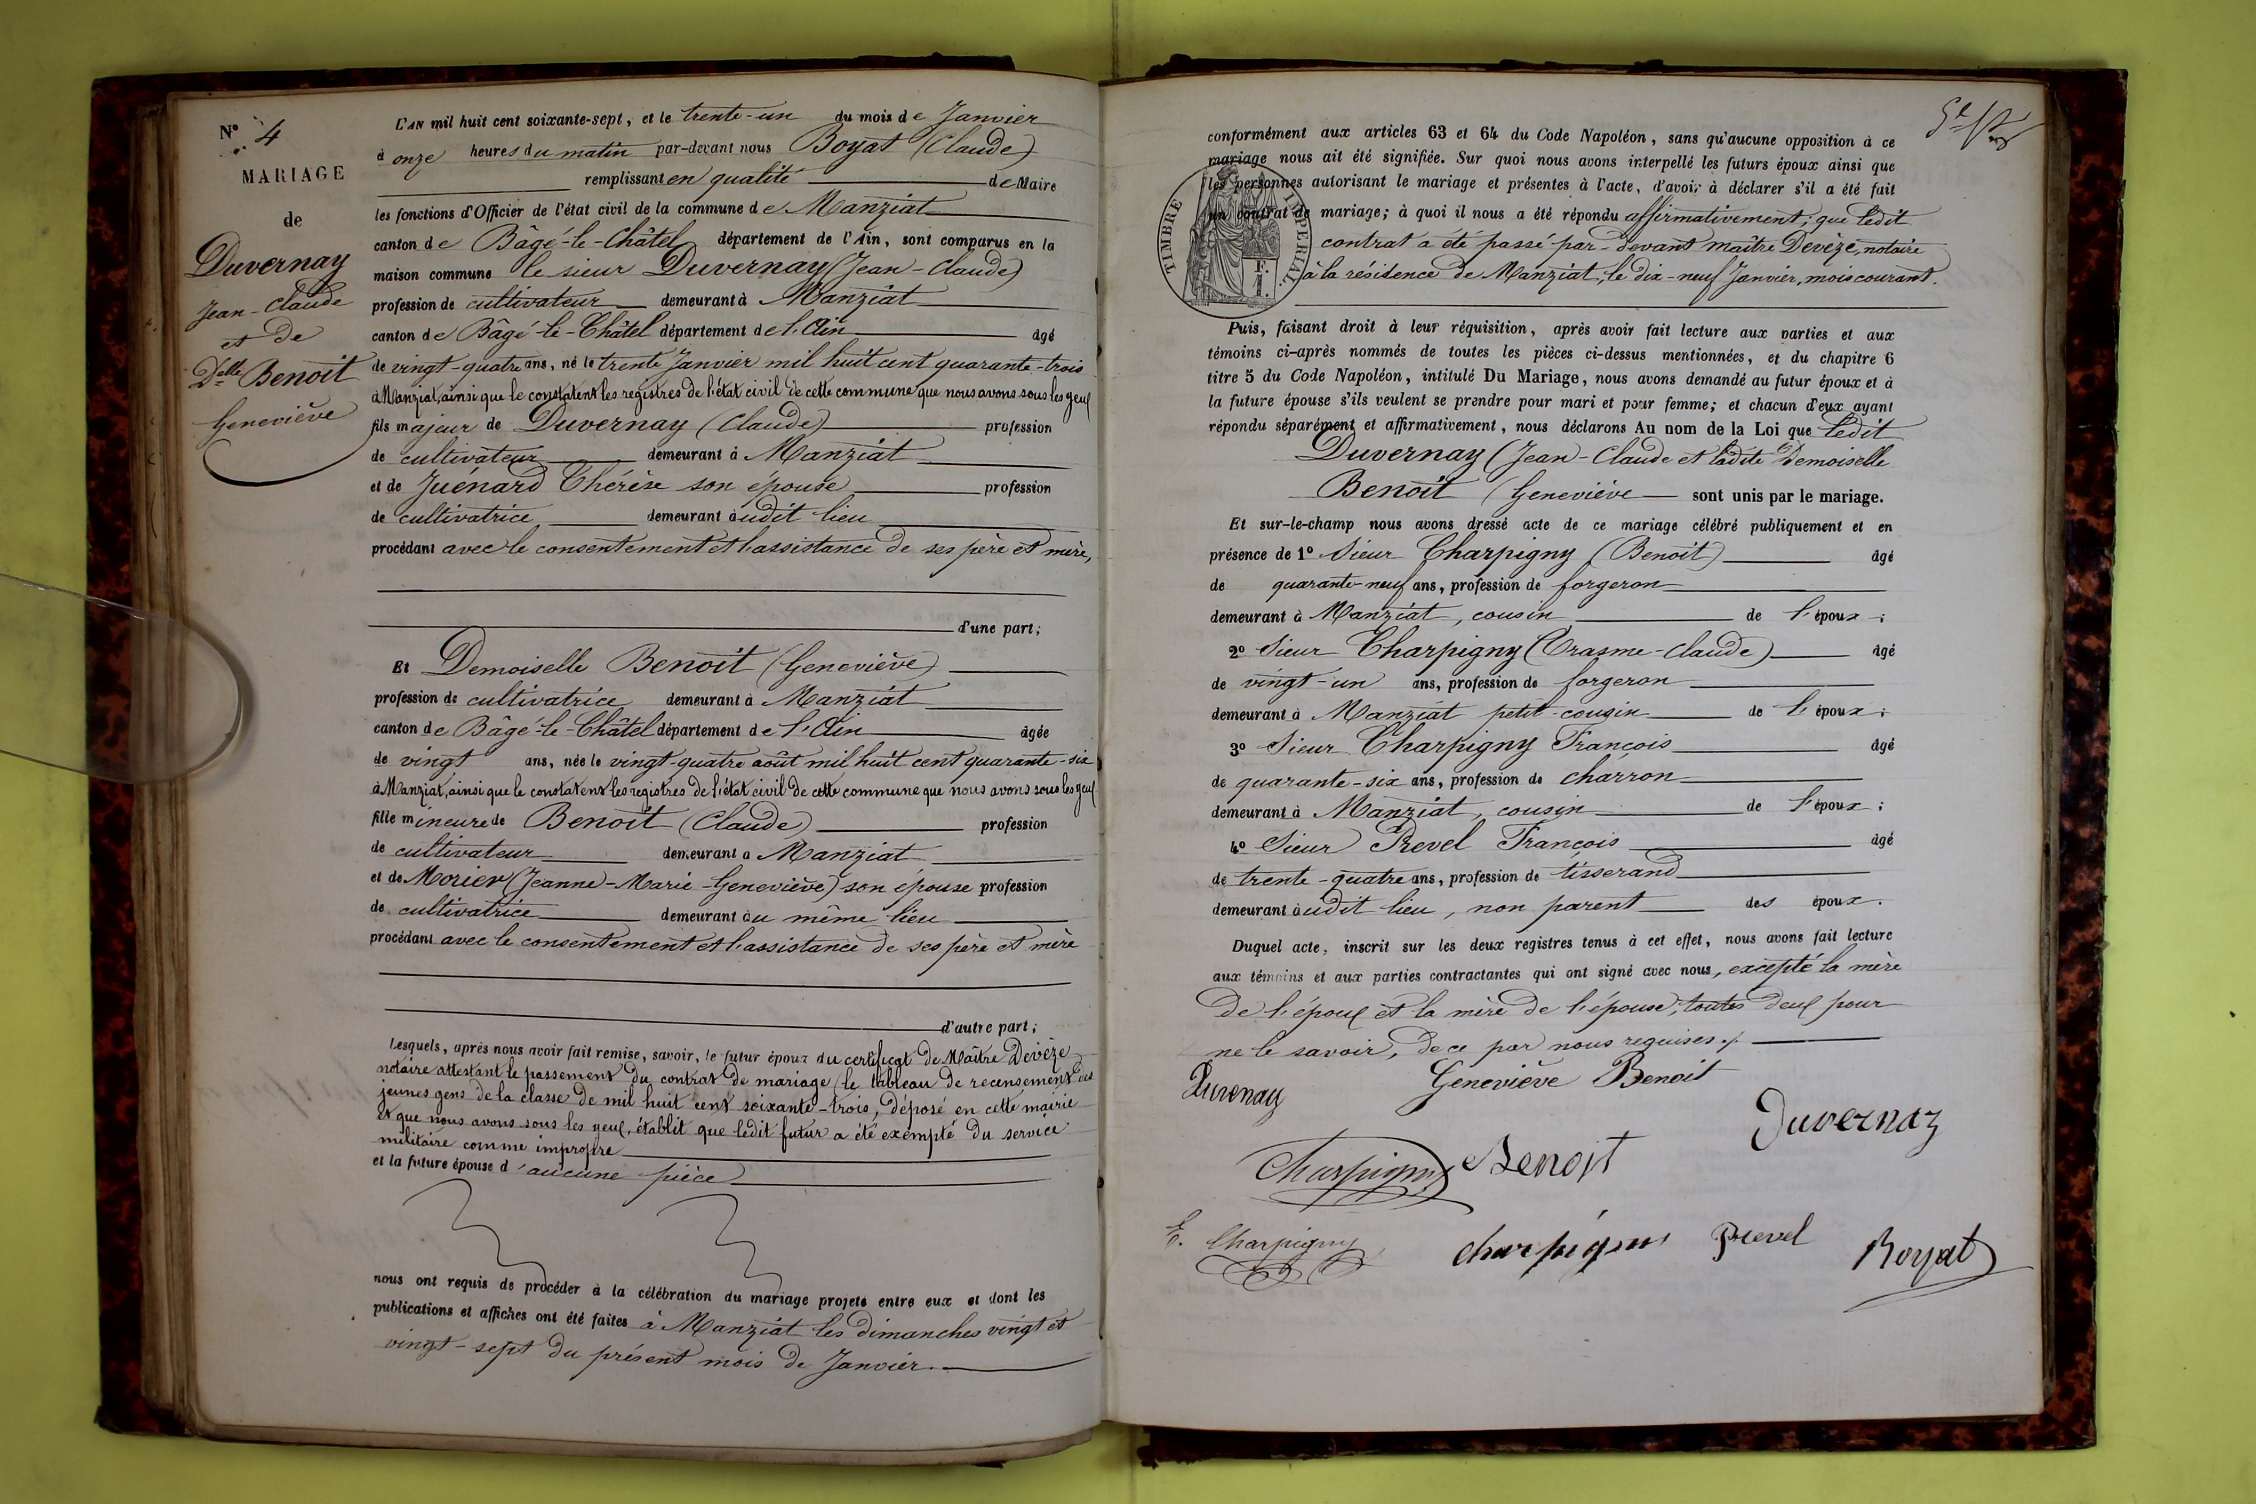 N° 4
MARIAGE
de
Duvernay
Jean-Claude
et de
Delle Benoit
Geneviève
L'AN mil huit cent soixante-sept, et le trente-un du mois de Janvier
à onze heures du matin par-devant nous Boyat (Claude)
remplissant en qualité de Maire
les fonctions d'Officier de l'état civil de la commune de Manziat
canton de Bâgé-le-Châtel département de l'Ain, sont comparus en la
maison commune le sieur Duvernay (Jean-Claude)
profession de cultivateur demeurant à Manziat
canton de Bâgé-le-Châtel département de l'Ain âgé
de vingt-quatre ans, né le trente Janvier mil huit cent quarante-trois
à Manziat, ainsi que le constatent les registres de l'état civil de cette commune que nous avons sous les yeux
fils majeur de Duvernay (Claude) profession
de cultivateur demeurant à Manziat
et de Juénard Thérèse son épouse profession
de cultivatrice demeurant audit lieu
procédant avec le consentement et l'assistance de ses père et mère,
d'une part;
Et Demoiselle Benoit (Geneviève)
profession de cultivatrice demeurant à Manziat
canton de Bâgé-le-Châtel département de l'Ain âgée
de vingt ans, née le vingt-quatre août mil huit cent quarante-six
à Manziat, ainsi que le constatent les registres de l'état civil de cette commune que nous avons sous les yeux
fille mineure de Benoit (Claude) profession
de cultivateur demeurant à Manziat
et de Morier (Jeanne-Marie-Geneviève) son épouse profession
de cultivatrice demeurant au même lieu
procédant avec le consentement et l'assistance de ses père et mère
d'autre part;
Lesquels, après nous avoir fait remise, savoir, le futur époux du certificat de Maître Devèze
notaire attestant le passement du contrat de mariage (le tableau de recensement des
jeunes gens de la classe de mil huit cent soixante-trois, déposé en cette mairie
et que nous avons sous les yeux, établit que ledit futur a été exempté du service
militaire comme impropre
et la future épouse d'aucune pièce
nous ont requis de procéder à la célébration du mariage projeté entre eux et dont les
publications et affiches ont été faites à Manziat les dimanches vingt et
vingt-sept du présent mois de Janvier.
conformément aux articles 63 et 64 du Code Napoléon, sans qu'aucune opposition à ce
mariage nous ait été signifiée. Sur quoi nous avons interpellé les futurs époux ainsi que
les personnes autorisant le mariage et présentes à l'acte, d'avoir à déclarer s'il a été fait
un contrat de mariage; à quoi il nous a été répondu affirmativement; que ledit
contrat a été passé par-devant maître Devèze, notaire
à la résidence de Manziat, le dix-neuf Janvier, mois courant.
TIMBRE IMPERIAL
F.
1.
Puis, faisant droit à leur réquisition, après avoir fait lecture aux parties et aux
témoins ci-après nommés de toutes les pièces ci-dessus mentionnées, et du chapitre 6
titre 5 du Code Napoléon, intitulé Du Mariage, nous avons demandé au futur époux et à
la future épouse s'ils veulent se prendre pour mari et pour femme; et chacun d'eux ayant
répondu séparément et affirmativement, nous déclarons Au nom de la Loi que ledit
Duvernay (Jean-Claude et ladite Demoiselle
Benoit (Geneviève sont unis par le mariage.
Et sur-le-champ nous avons dressé acte de ce mariage célébré publiquement et en
présence de 1° Sieur Charpigny (Benoit) âgé
de quarante-neuf ans, profession de forgeron
demeurant à Manziat, cousin de l'époux;
2° Sieur Charpigny (Erasme-Claude) âgé
de vingt-un ans, profession de forgeron
demeurant à Manziat petit-cousin de l'époux;
3° Sieur Charpigny François âgé
de quarante-six ans, profession de charron
demeurant à Manziat, cousin de l'époux;
4° Sieur Prevel François âgé
de trente-quatre ans, profession de tisserand
demeurant audit lieu, non parent des époux.
Duquel acte, inscrit sur les deux registres tenus à cet effet, nous avons fait lecture
aux témoins et aux parties contractantes qui ont signé avec nous, excepté la mère
de l'époux et la mère de l'épouse, toutes deux pour
ne le savoir, de ce par nous requises.
Duvernay Geneviève Benoit
Duvernay
Charpigny Benoit
E. Charpigny charpigny Prevel Boyat